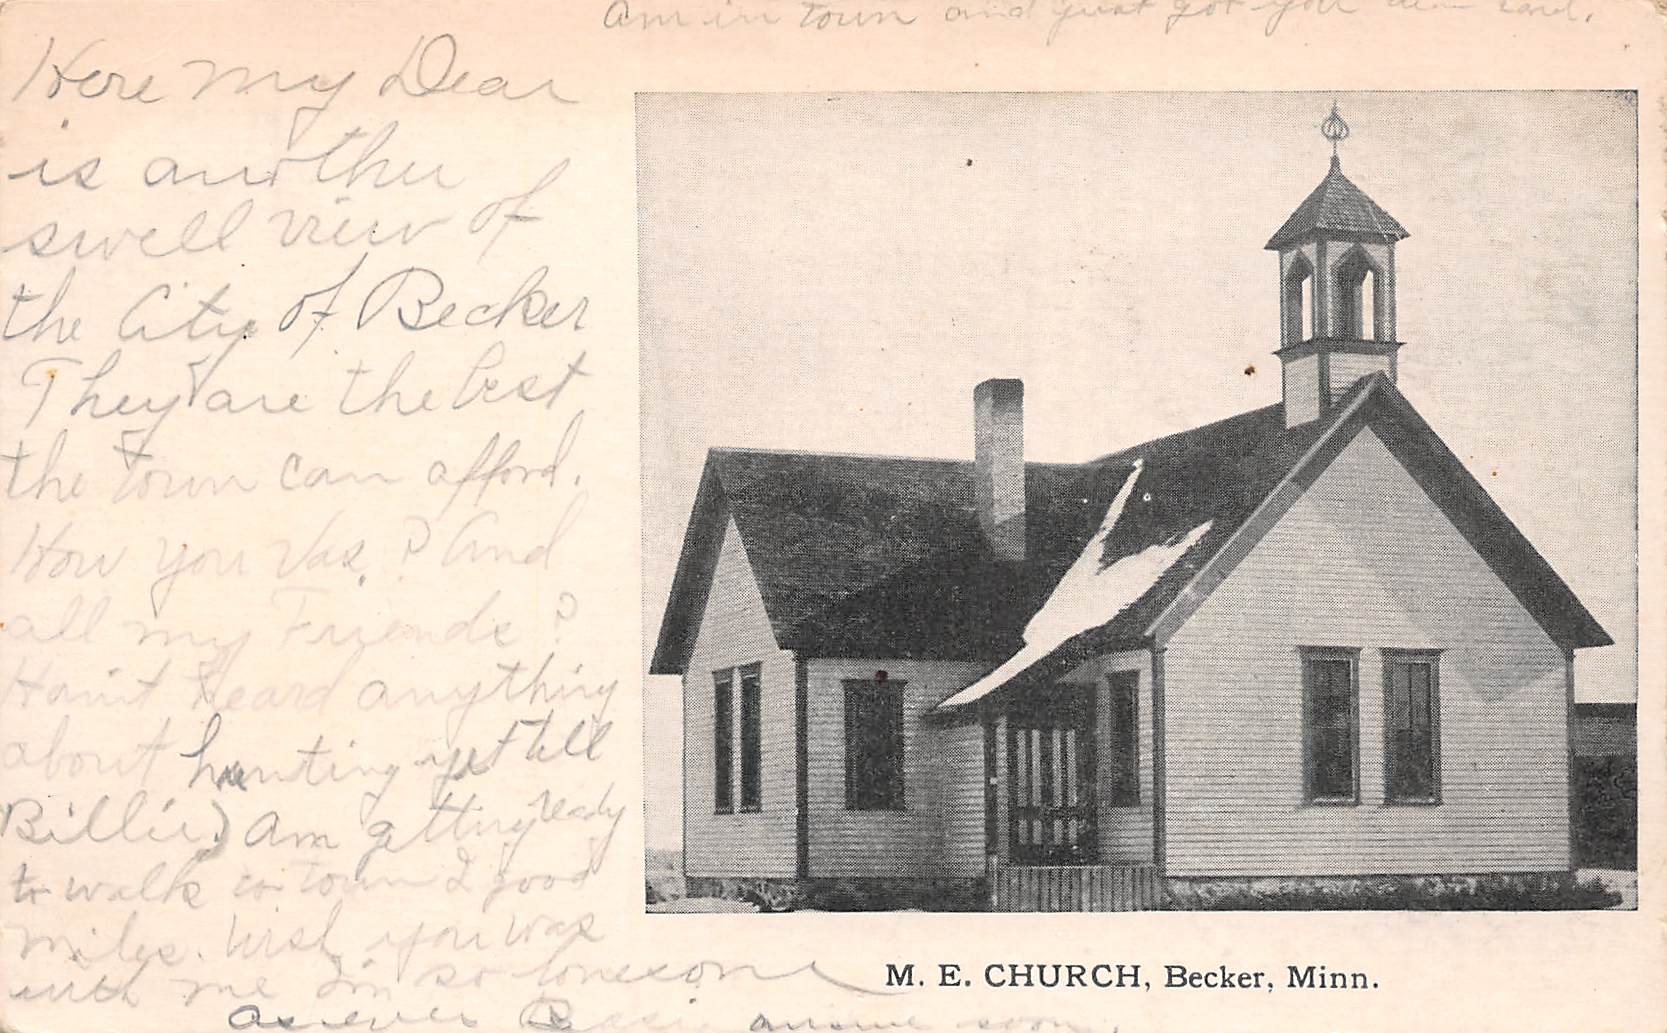 Am in town and just got you dear card.
Here my Dear
is another
swell view of
the City of Becker
They are the best
the town can afford.
How you vas? And
all my Friends?
Haint heard anything
about hunting yet tell
Billie) Am getting ready
to walk to town 2 good
miles. Wish you was
with me Im so lonesome
as ever answer soon.
M. E. CHURCH, Becker, Minn.